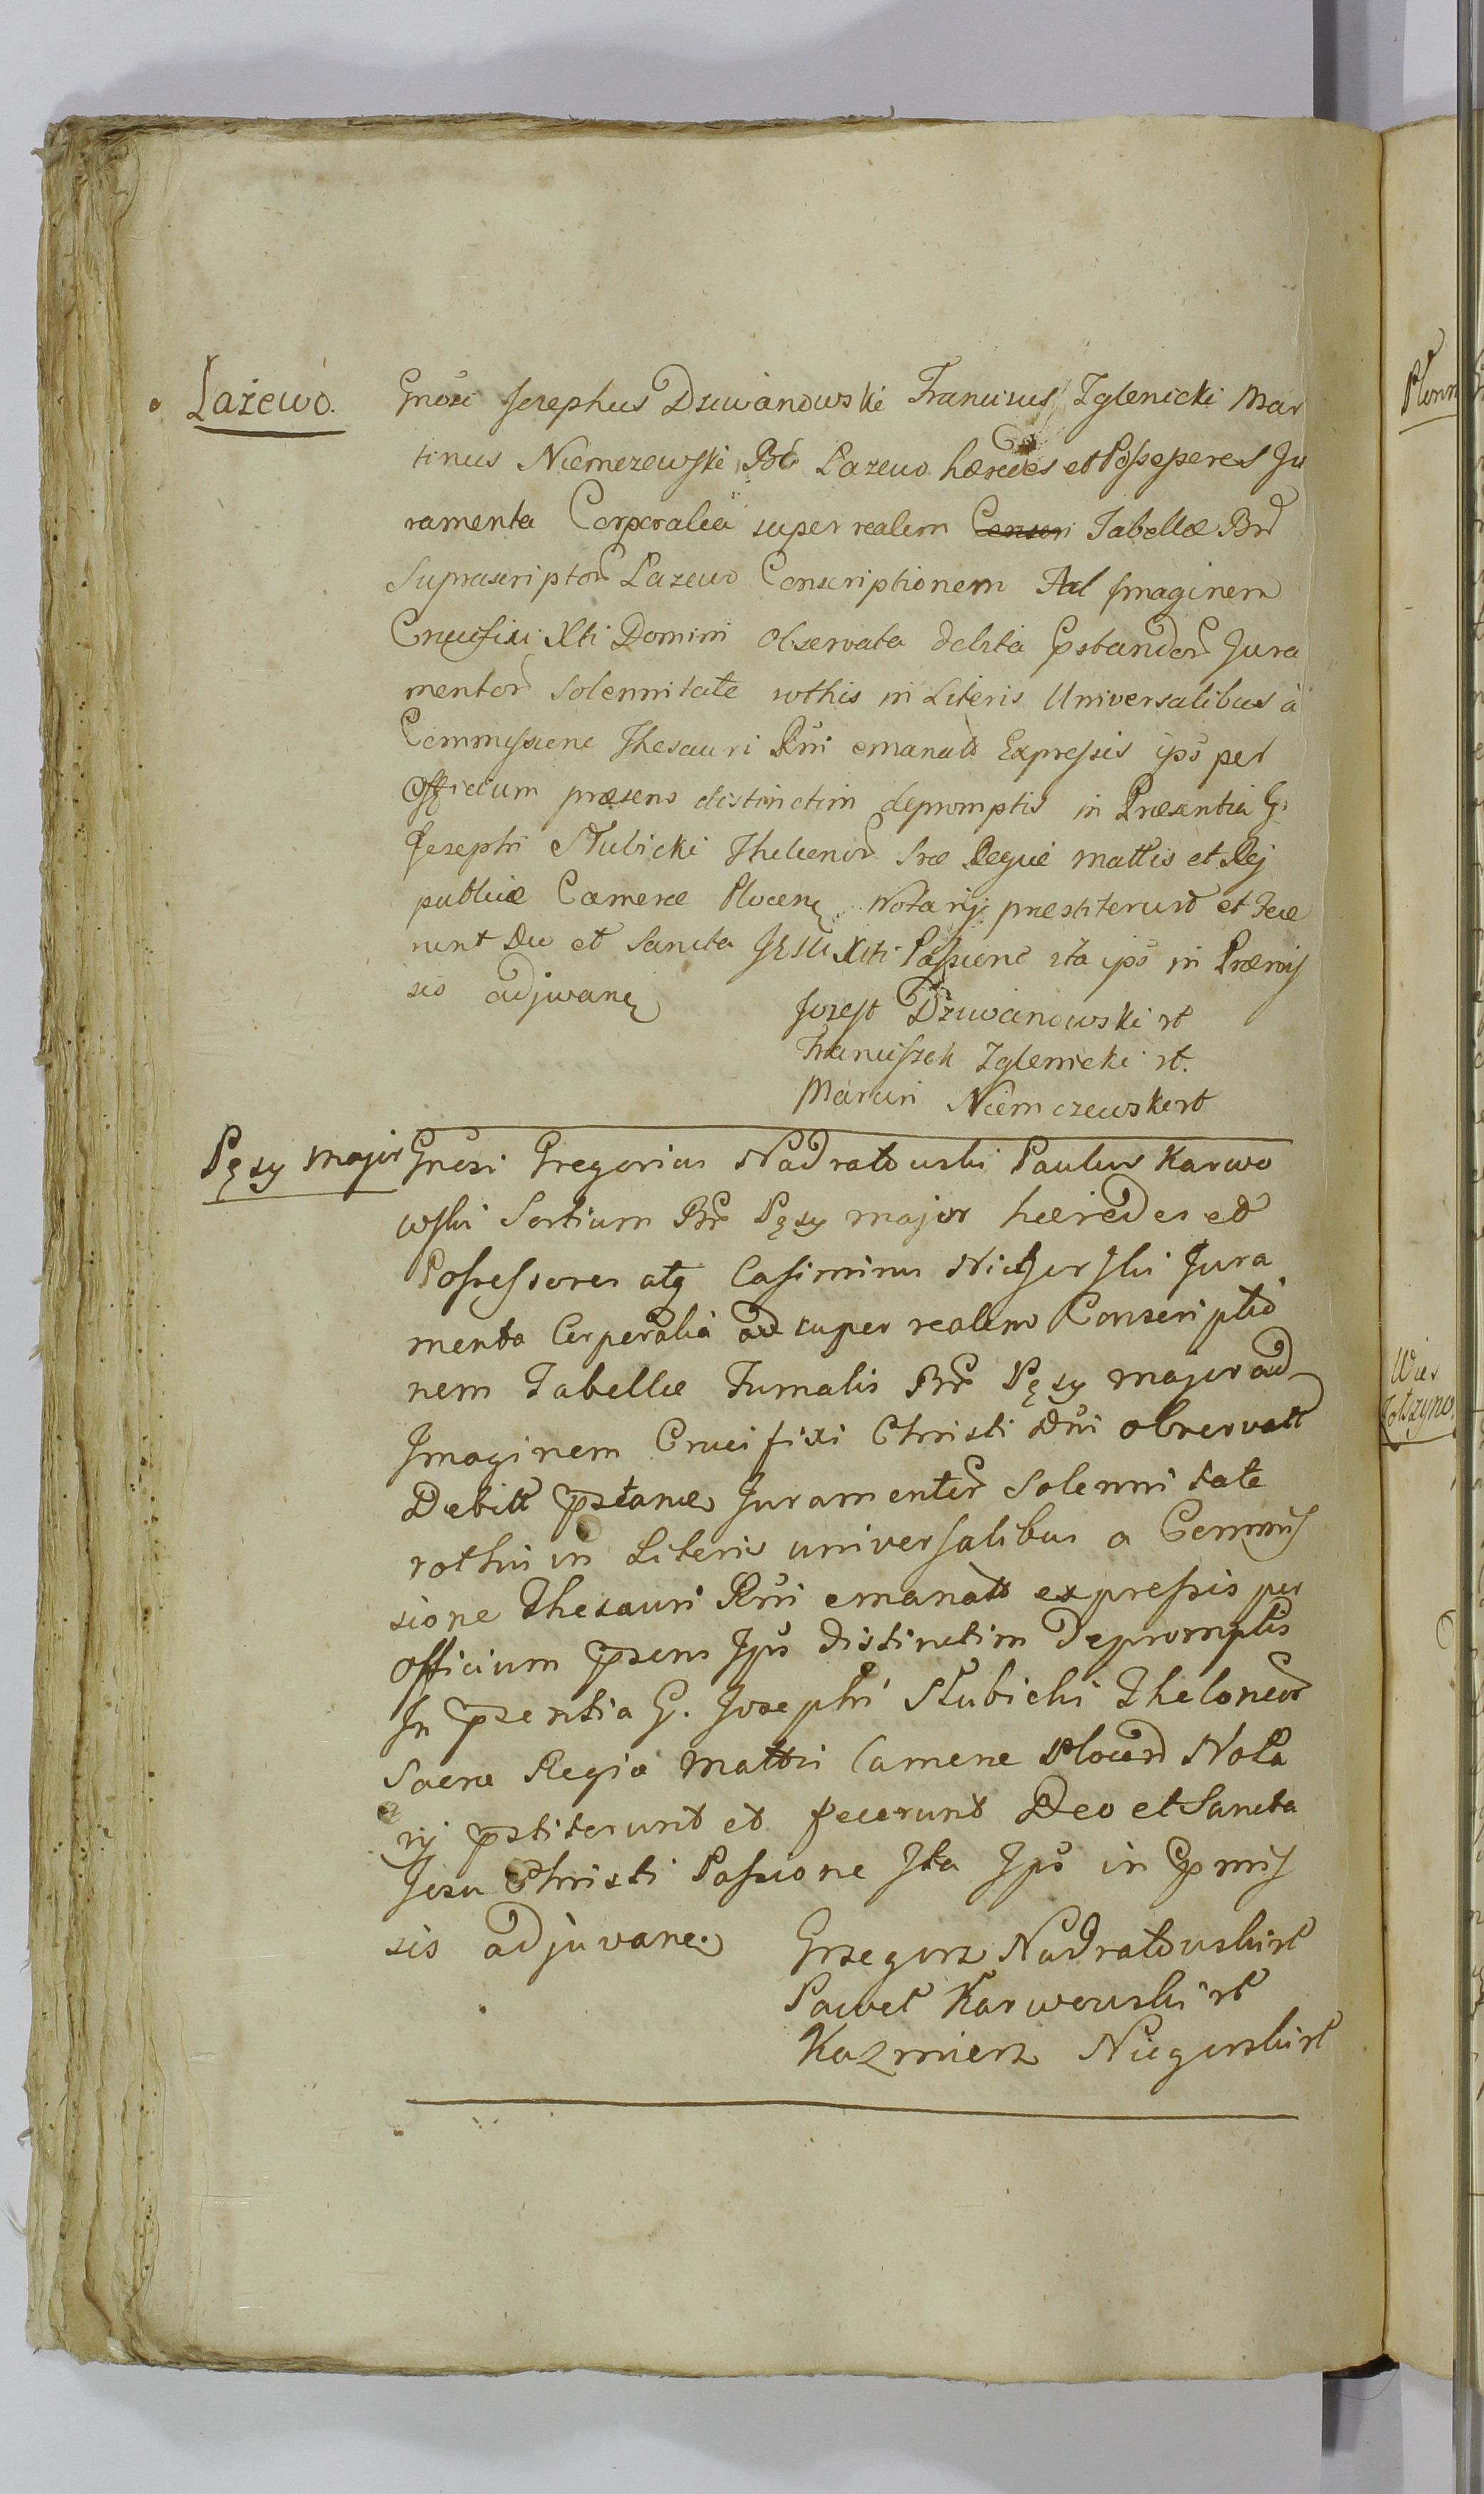 Łażewo.
Gnosi Josephus Dziwanowski Franciscus Zglenicki Mar
tinus Niemczewski Bó Łazewo hæredes et Possessores Ju
ramenta Corporalia super realem Conscri Tabellæ Bró
Suprascriptoꝝ Lazewo Conscriptionem Ad Imaginem
Crucifixi Xti Domini observata debita pstandoꝝ Jura
mentoꝝ Solennitate rothis in Literis Universalibus à
Commissione Thesauri Rni emanatt Expressis ips per
Officium præsens distinctim depromptis in Præsentia G.
Josephi Słubicki Theleneoꝝ Sræ Regiæ Mattis et Rej
publicæ Cameræ Plocen Notarij præstiterunt et fece
runt Deo et Sancta JESU Xti Passione ita ips in Præmis
sis adjuvan
Jozeft Dziwanowski rt
Franciszek Zglenicki rt.
Marcin Niemczewski rt
Pęsy major
Gnosi Gregorius Nadratowski Paulus Karwo
wski Sortium Br Pęsy major hæredes et
Possessores atq Casimirus Nicgorski Jura
menta Corporalia ad super realem Conscriptio
nem Tabellæ Fumalis Br Pęsy major ad
Imaginem Crucifixi Christi Dni observatt
Debitt pstan Juramentoꝝ Solennitate
rothis in Literis universalibus a Commis
sione Thesauri Rni emanatt expressis per
officium psens Ips distinctim Depromptis
In psentia G. Josephi Słubicki Theloneoꝝ
Sacræ Regiæ Mattis Cameræ Plocen Nota
rij pstiterunt et fecerunt Deo et Sancta
Jesu Christi Passione Ita Ips in pmis
sis adjuvan
Grzegorz Nadratowski rt
Paweł Karwowski rt
Kazmierz Niegorski rt
Płonn
Wier